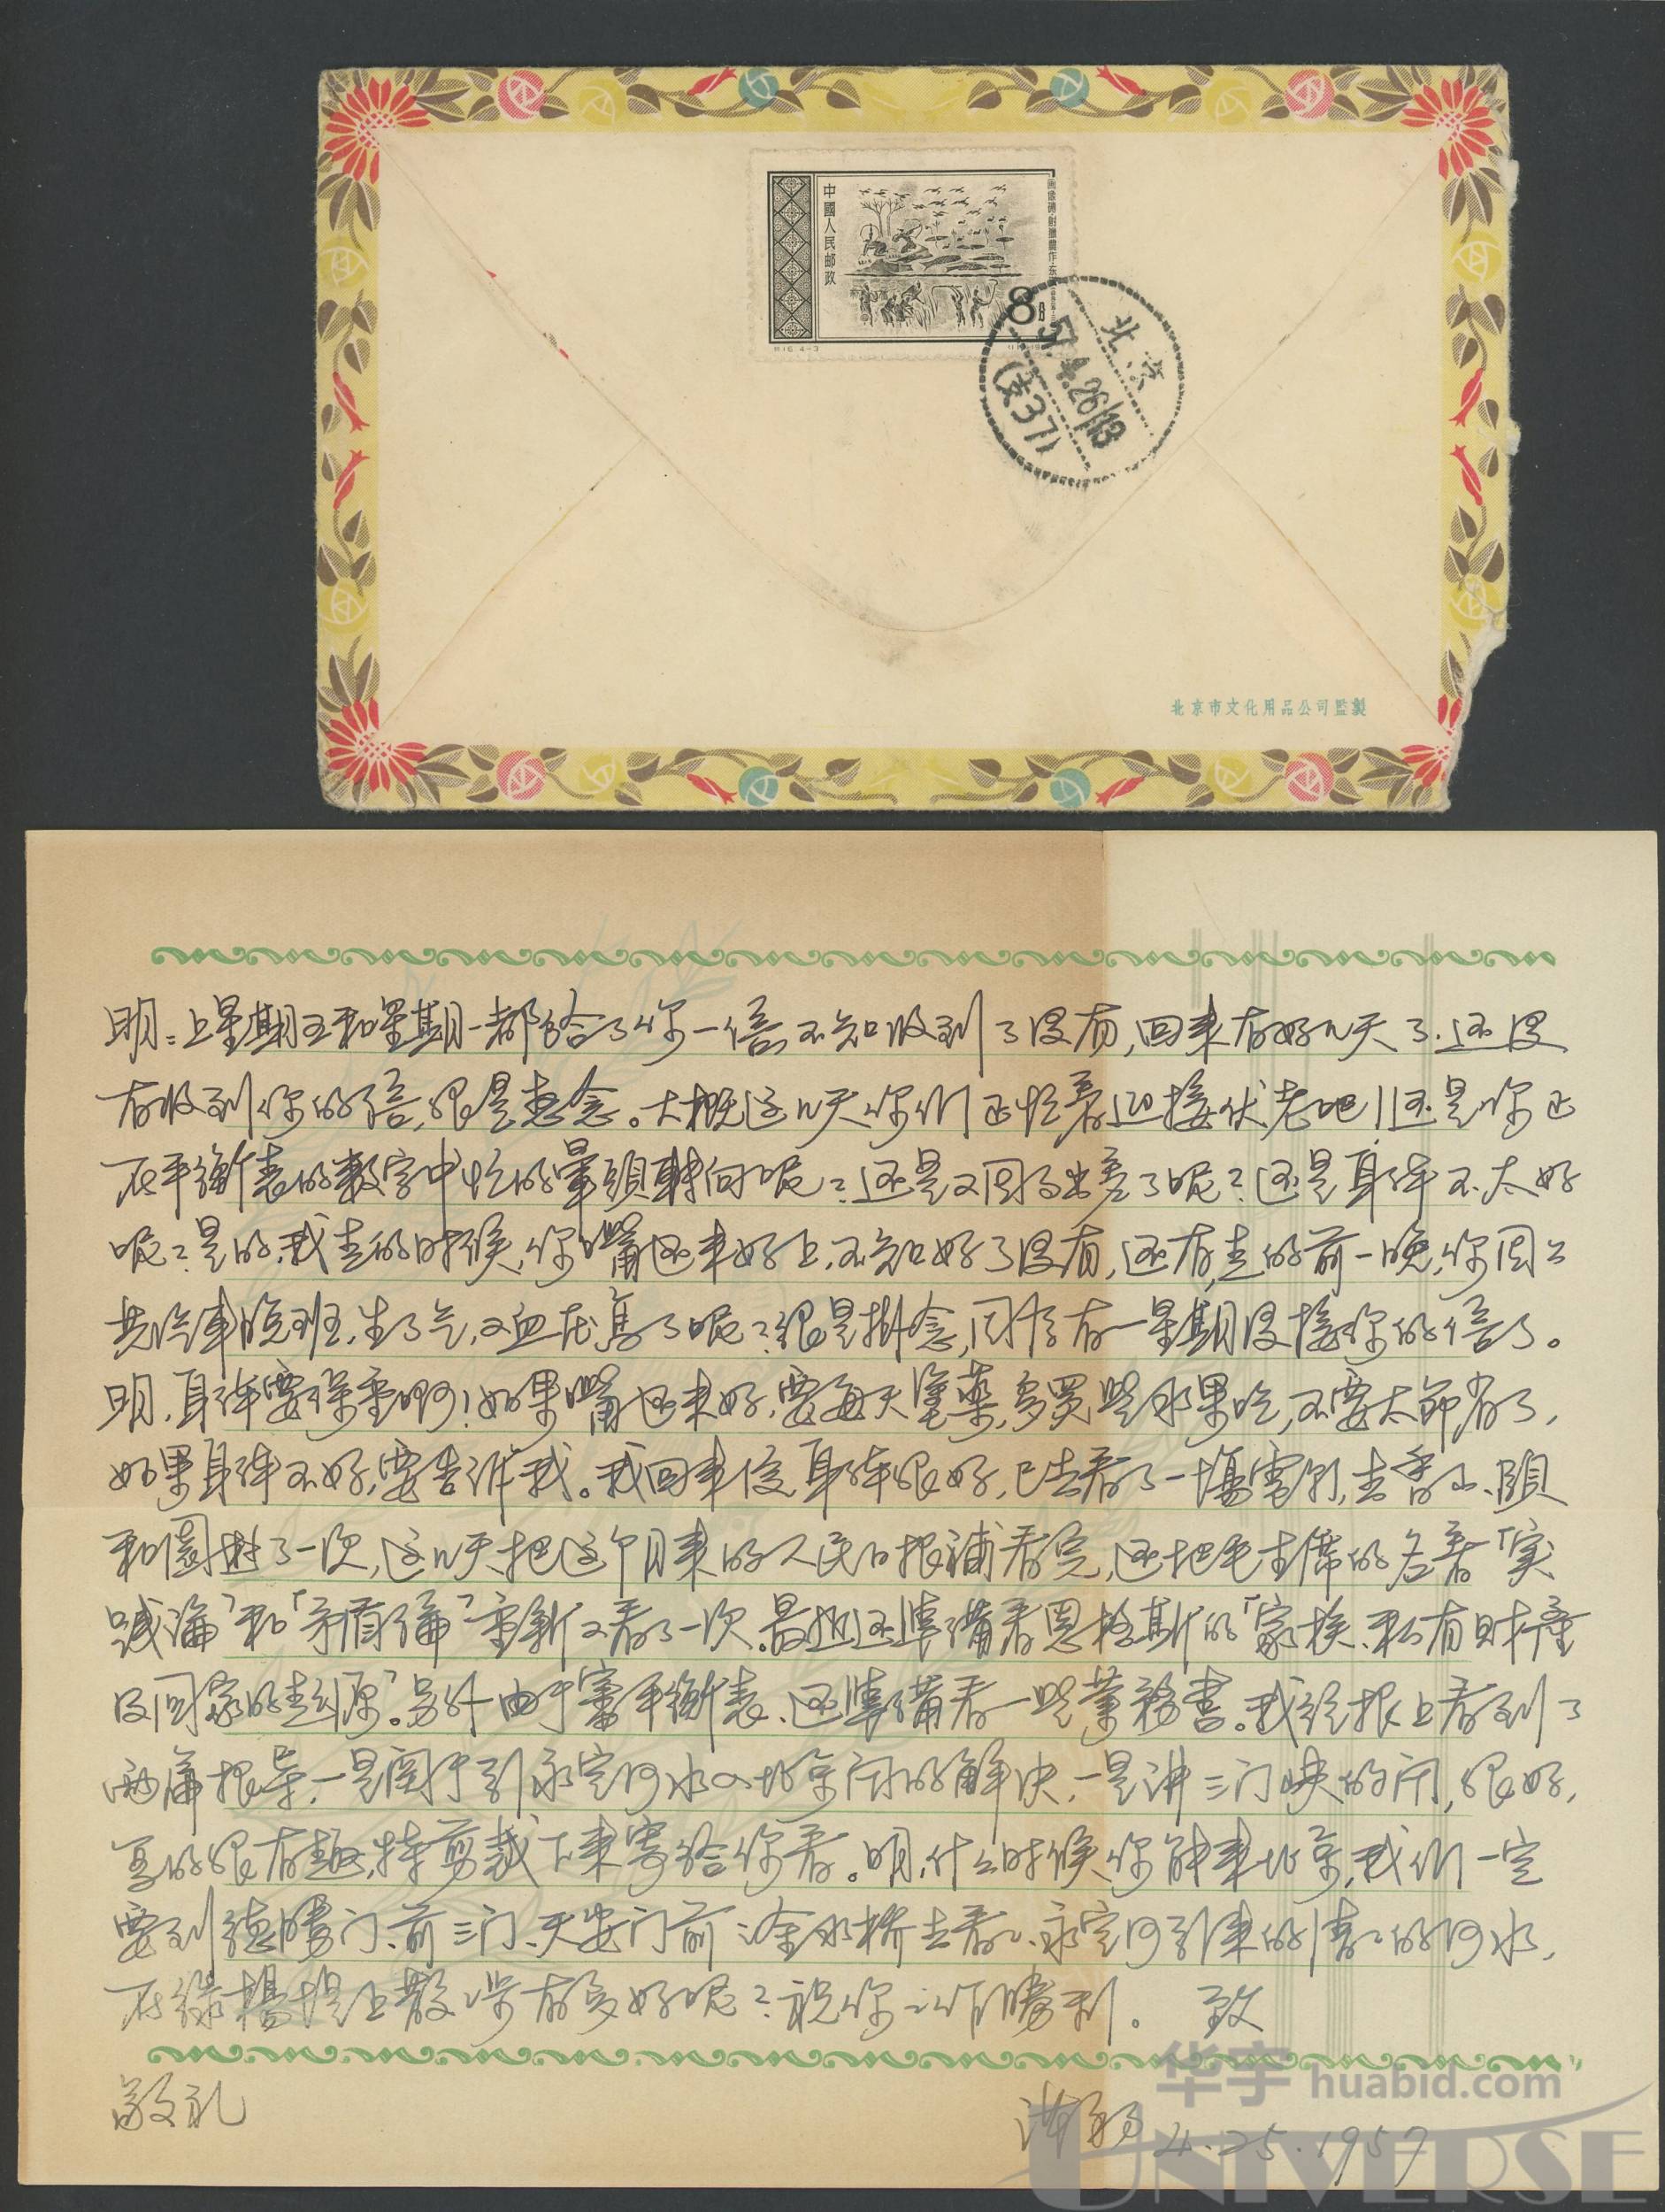 中國人民邮政
8
特16.4-3
北京
57.4.26.18
(支37)
北京市文化用品公司監製
明：上星期五和星期一都给了你一信，不知收到了没有，回来有好几天了，还没
有收到你的信，很是想念。大概这几天你们正忙着迎接伏老吧！还是你正
在平衡表的数字中忙的暈頭轉向呢？还是又因为出差了呢？还是身体不太好
呢？是的，我走的时候，你嘴还未好上，不知好了没有，还有，走的前一晚，你因公
共汽車晚班，生了气，又血压高了呢？很是掛念，因为有一星期没接你的信了。
明，身体要保重啊！如果嘴还未好，要每天塗藥，多買些水果吃，不要太節省了，
如果身体不好，要告诉我。我回来後，身体很好，已去看了一場電影，去香山、頤
和園遊了一次，这几天把这个月来的人民日报補看完，还把毛主席的名著「实
踐論」和「矛盾論」重新又看了一次。最近还準備看恩格斯的「家族、私有財產
及囯家的起源」。另外由于審平衡表，还準備看一些業務書。我经报上看到了
兩篇报导，一是関于引永定河水入北京问的解决，一是讲三门峽的问，很好，
写的很有趣，特剪裁下来寄给你看。明，什么时候，你能来北京，我们一定
要到德勝门、前三门、天安门前：金水桥去看看永定河引来的清清的河水，
在绿楊堤上散步有多好呢？祝你工作勝利。 致
敬礼
4.25.1957
华宇 huabid.com
UNIVERSE